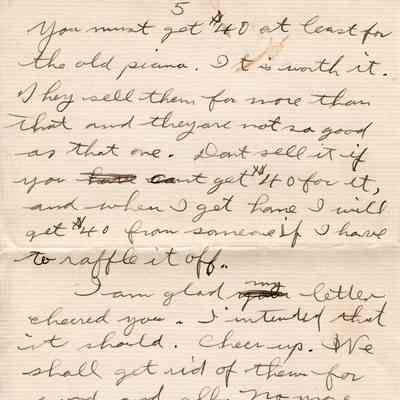 5
You must get $40 at least for
the old piano. It is worth it.
They sell them for more than
that and they are not so good
as that one. Dont sell it if
you cant get $40 for it,
and when I get home I will
get $40 from someone if I have
to raffle it off.
I am glad my letter
cheered you. I intended that
it should. Cheer up. We
shall get rid of them for
good and all. No more